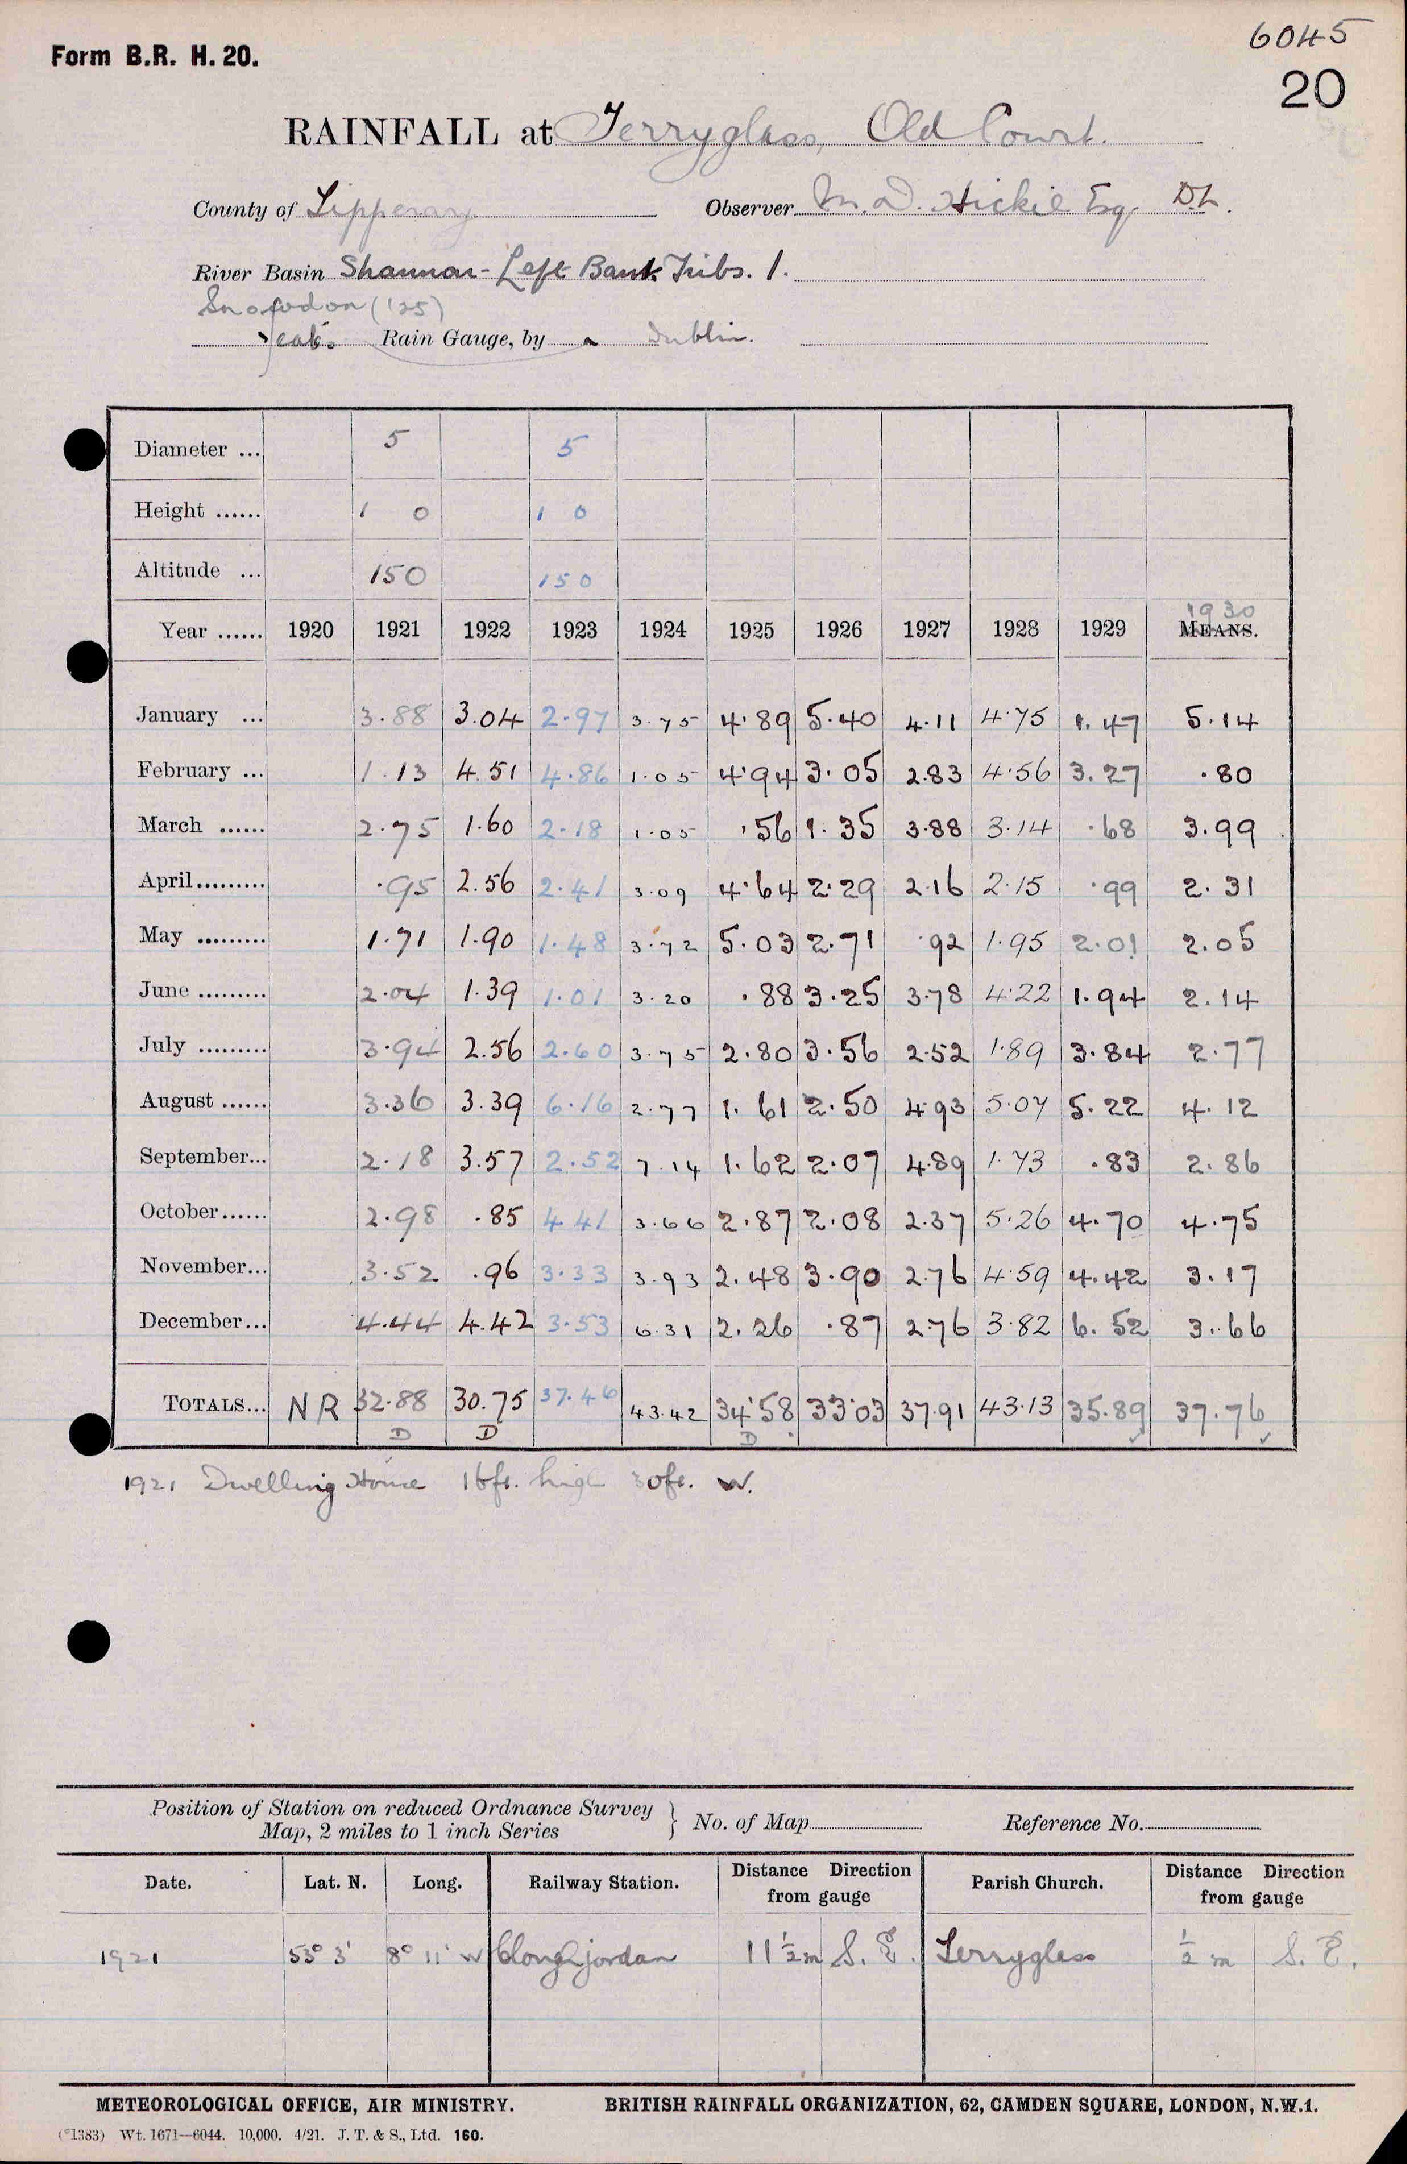 6045
Form B.R. H. 20.
20
RAINFALL at Terryglass, Old Court.
County of Tipperary Observer M. D. Hickie Esq. D.L.
River Basin Shannon - Left Bank Tribs. 1.
Snowdon ('25)
Yeates Rain Gauge, by Dublin.
Diameter ... 5 5
Height ...... 1 0 1 0
Altitude ... 150 150
1930
Year ...... 1920 1921 1922 1923 1924 1925 1926 1927 1928 1929 MEANS.
January ... 3.88 3.04 2.97 3.75 4.89 5.40 4.11 4.75 1.47 5.14
February ... 1.13 4.51 4.86 1.05 4.94 3.05 2.83 4.56 3.27 .80
March ...... 2.75 1.60 2.18 1.05 .56 1.35 3.88 3.14 .68 3.99
April......... .95 2.56 2.41 3.09 4.64 2.29 2.16 2.15 .99 2.31
May ......... 1.71 1.90 1.48 3.72 5.03 2.71 .92 1.95 2.01 2.05
June ......... 2.04 1.39 1.01 3.20 .88 3.25 3.78 4.22 1.94 2.14
July ......... 3.94 2.56 2.60 3.75 2.80 3.56 2.52 1.89 3.84 2.77
August ...... 3.36 3.39 6.16 2.77 1.61 2.50 4.93 5.07 5.22 4.12
September... 2.18 3.57 2.52 7.14 1.62 2.07 4.89 1.73 .83 2.86
October...... 2.98 .85 4.41 3.66 2.87 2.08 2.37 5.26 4.70 4.75
November... 3.52 .96 3.33 3.93 2.48 3.90 2.76 4.59 4.42 3.17
December... 4.44 4.42 3.53 6.31 2.26 .87 2.76 3.82 6.52 3.66
TOTALS... NR 32.88 30.75 37.46 43.42 34.58 33.03 37.91 43.13 35.89 37.76
D D D
1921 Dwelling House 16ft. high 30ft. W.
Position of Station on reduced Ordnance Survey
Map, 2 miles to 1 inch Series } No. of Map Reference No.
Date. Lat. N. Long. Railway Station. Distance Direction from gauge Parish Church. Distance Direction from gauge
1921 53° 3' 8° 11' W Cloughjordan 11 1/2 m S. E. Terryglass 1/2 m S. E.
METEOROLOGICAL OFFICE, AIR MINISTRY. BRITISH RAINFALL ORGANIZATION, 62, CAMDEN SQUARE, LONDON, N.W.1.
(*1383) Wt. 1671—6044. 10,000. 4/21. J. T. & S., Ltd. 160.